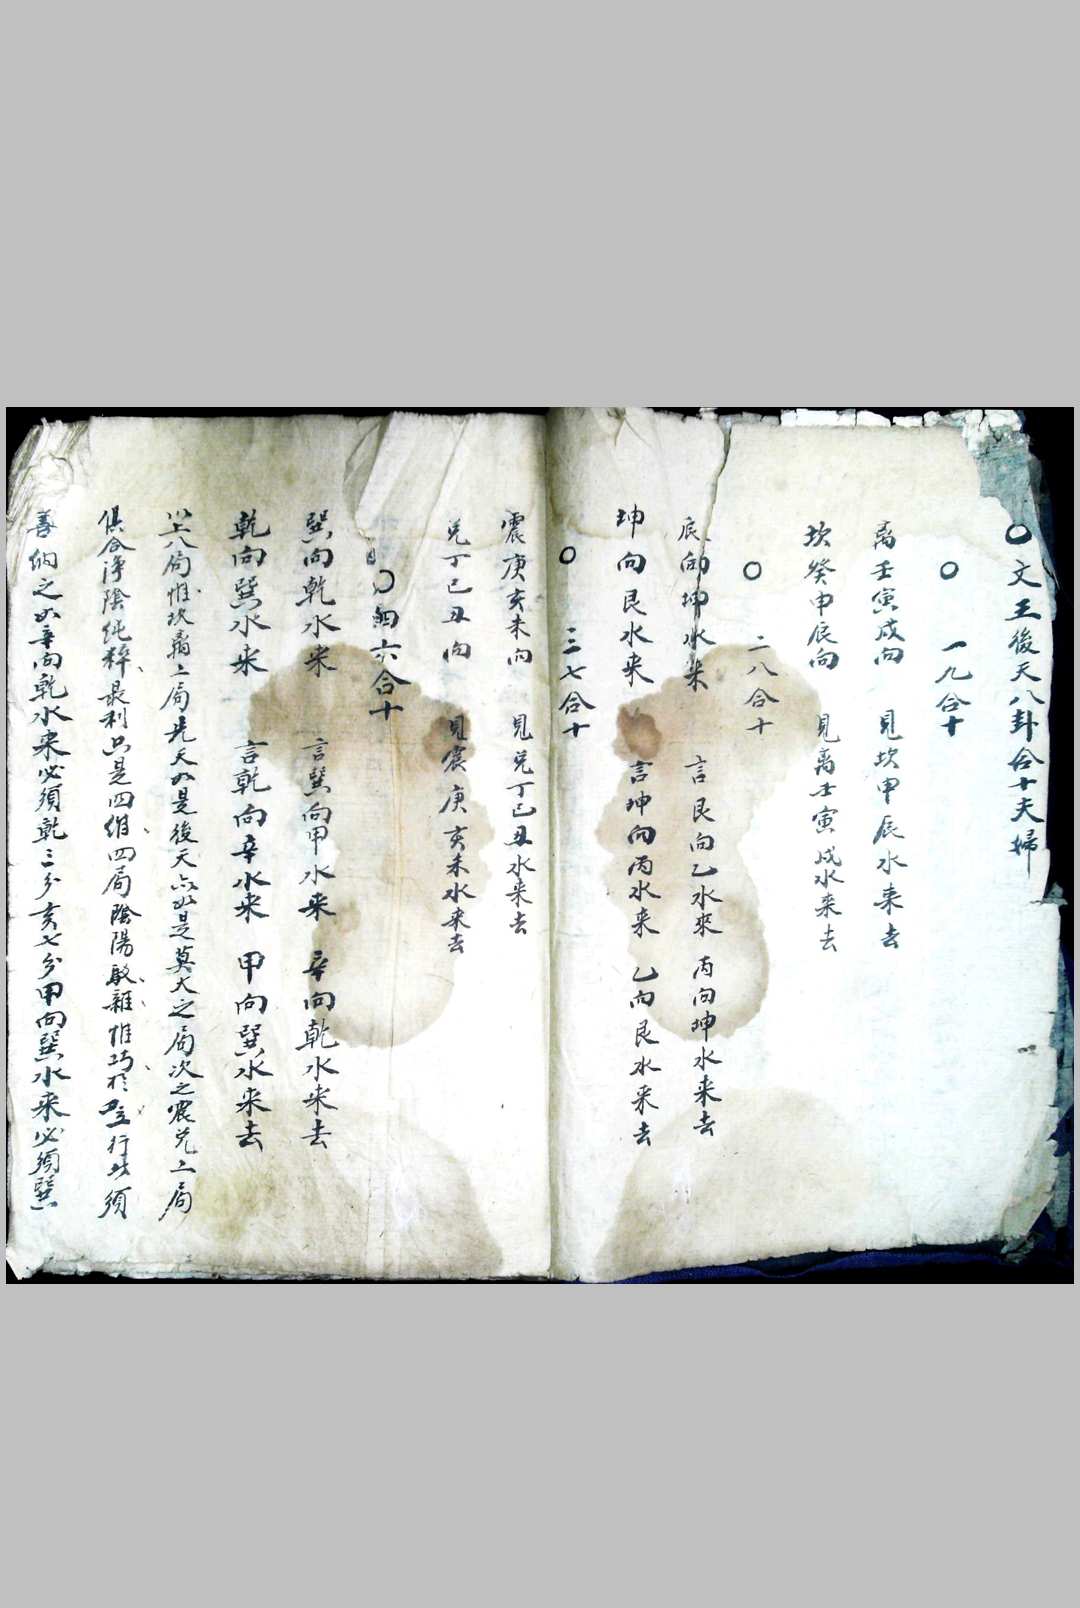 ○文王後天八卦合十夫婦
○ 一九合十
离壬寅戌向 見坎甲辰水来去
坎癸申辰向 見离壬寅戌水来去
○ 二八合十
艮向坤水来 言艮向乙水來 丙向坤水来去
坤向艮水来 言坤向丙水来 乙向艮水来去
○ 三七合十
震庚亥未向 見兌丁巳丑水来去
兌丁巳丑向 見震庚亥未水来去
○四六合十
巽向乾水来 言巽向甲水来 辛向乾水来去
乾向巽水来 言乾向辛水来 甲向巽水来去
以上八局惟坎离二局先天如是後天亦如是莫大之局次之震兌二局
俱合淨陰純粹最利只是四維四局陰陽駁雜惟巧於立行此須
善納之如辛向乾水来必須乾三分亥七分甲向巽水来必須巽